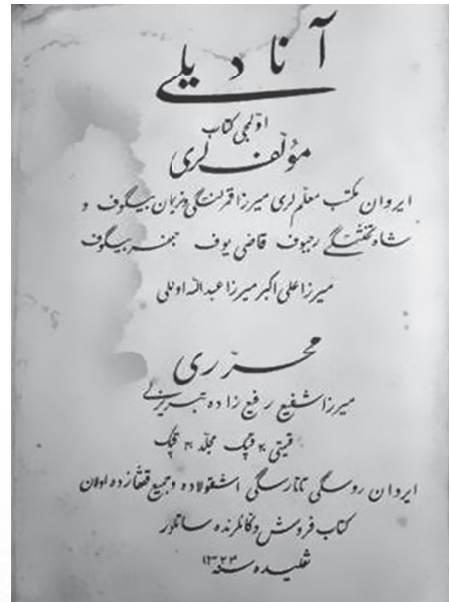 آنا دیلی
اوّلمجی کتاب
مؤلّفلری
ایروان مکتب معلّم لری میرزا قرلنگی نریمان بیگوف و
شاه تختنسگی رجبوف قاضی یوف جعفر بیگوف
میرزا علی اکبر میرزا عبدالله اوغلی
محرّری
میرزا شفیع رفیع زاده تبریزلی
قیمتی ۲۰ قپک مجلّد ۳۰ قپک
ایروان روسگی تاتارسگی اشقولاده و جمیع قفقازده اولان
کتاب فروش دکانلرنده ساتلور
تفلیسده سنه ۱۳۲۴